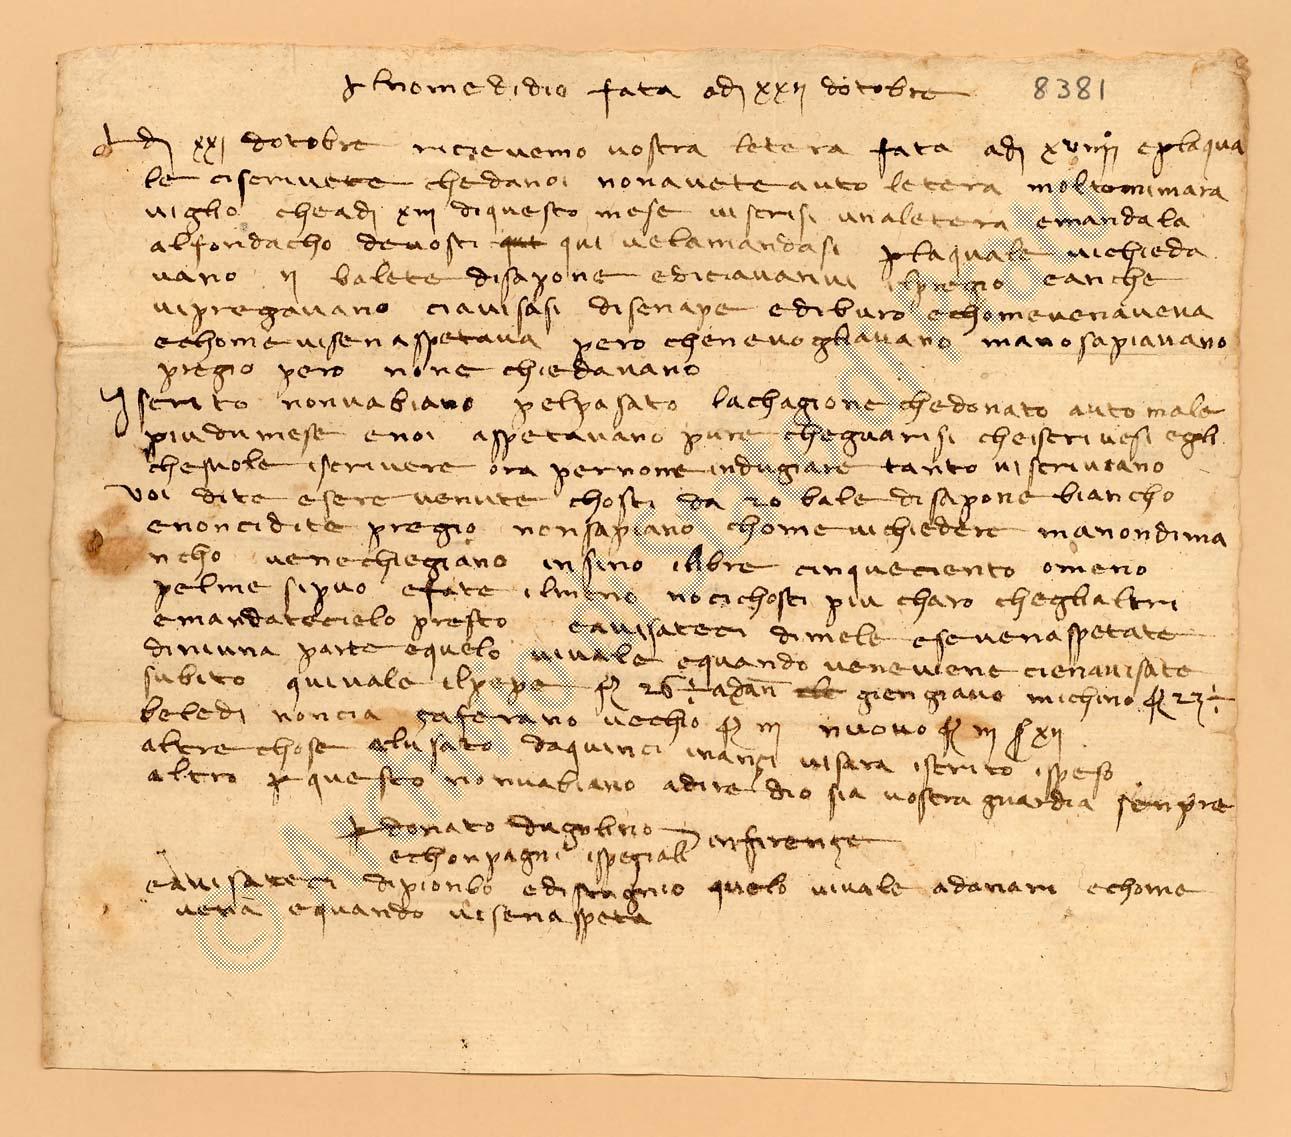 Al nome di dio fata adj xxij dotobre 8381
A dj xxj dotobre ricievemo vostra letera fata adj xviiij e per la qua
le ciscrivete che da noi non avete auto letera molto mi mara
viglio che adj xiij di questo mese vi scrisi una letera e manda la
al fondacho de vosti qui ve la mandasi per la quale vi chieda
vano ij balete di sapone e diciavanvi il pregio e anche
vi pregavano ci avisasi di senape e di buro e chome ve n aveva
e chome vi se n aspetava pero che ne vogliavano ma no sapiavano
pregio pero none chiedavano
Iscrito non vabiano pel pasato la chagione che donato auto male
piu du mese e noi aspetavano pure che guarisi che iscrivesi egli
che suole iscrivere ora per none indugiare tanto vi scriviano
Voi dite esere venute chosti da 20 bale di sapone biancho
e non ci dite pregio non sapiano chome vi chiedere ma non dima
ncho ve ne chiegiano insino i libre cinqueciento o meno
pel me si puo e fate il meno no ci chosti piu charo che gli altri
e mandatecielo presto e avisateci di mele e se ve n aspetate
di niuna parte e quelo vi vale e quando ve ne viene cie n avisate
subito qui vale il pepe 26 ½ a dan giengiavo michino 27 ½
beledj non cia gaferano vechio iij nuovo iij xij
altre chose a lusato da quinci inanzi vi sara iscrito ispeso
altro per questo non vabiano a dire dio sia vostra guardia senpre
per donato dugolino
e chonpagni ispeziali in firenze
e avisateci di pionbo e di stagnio quelo vi vale a danari e chome
vena e quando vi se n aspeta
© Archivio di Stato di Prato